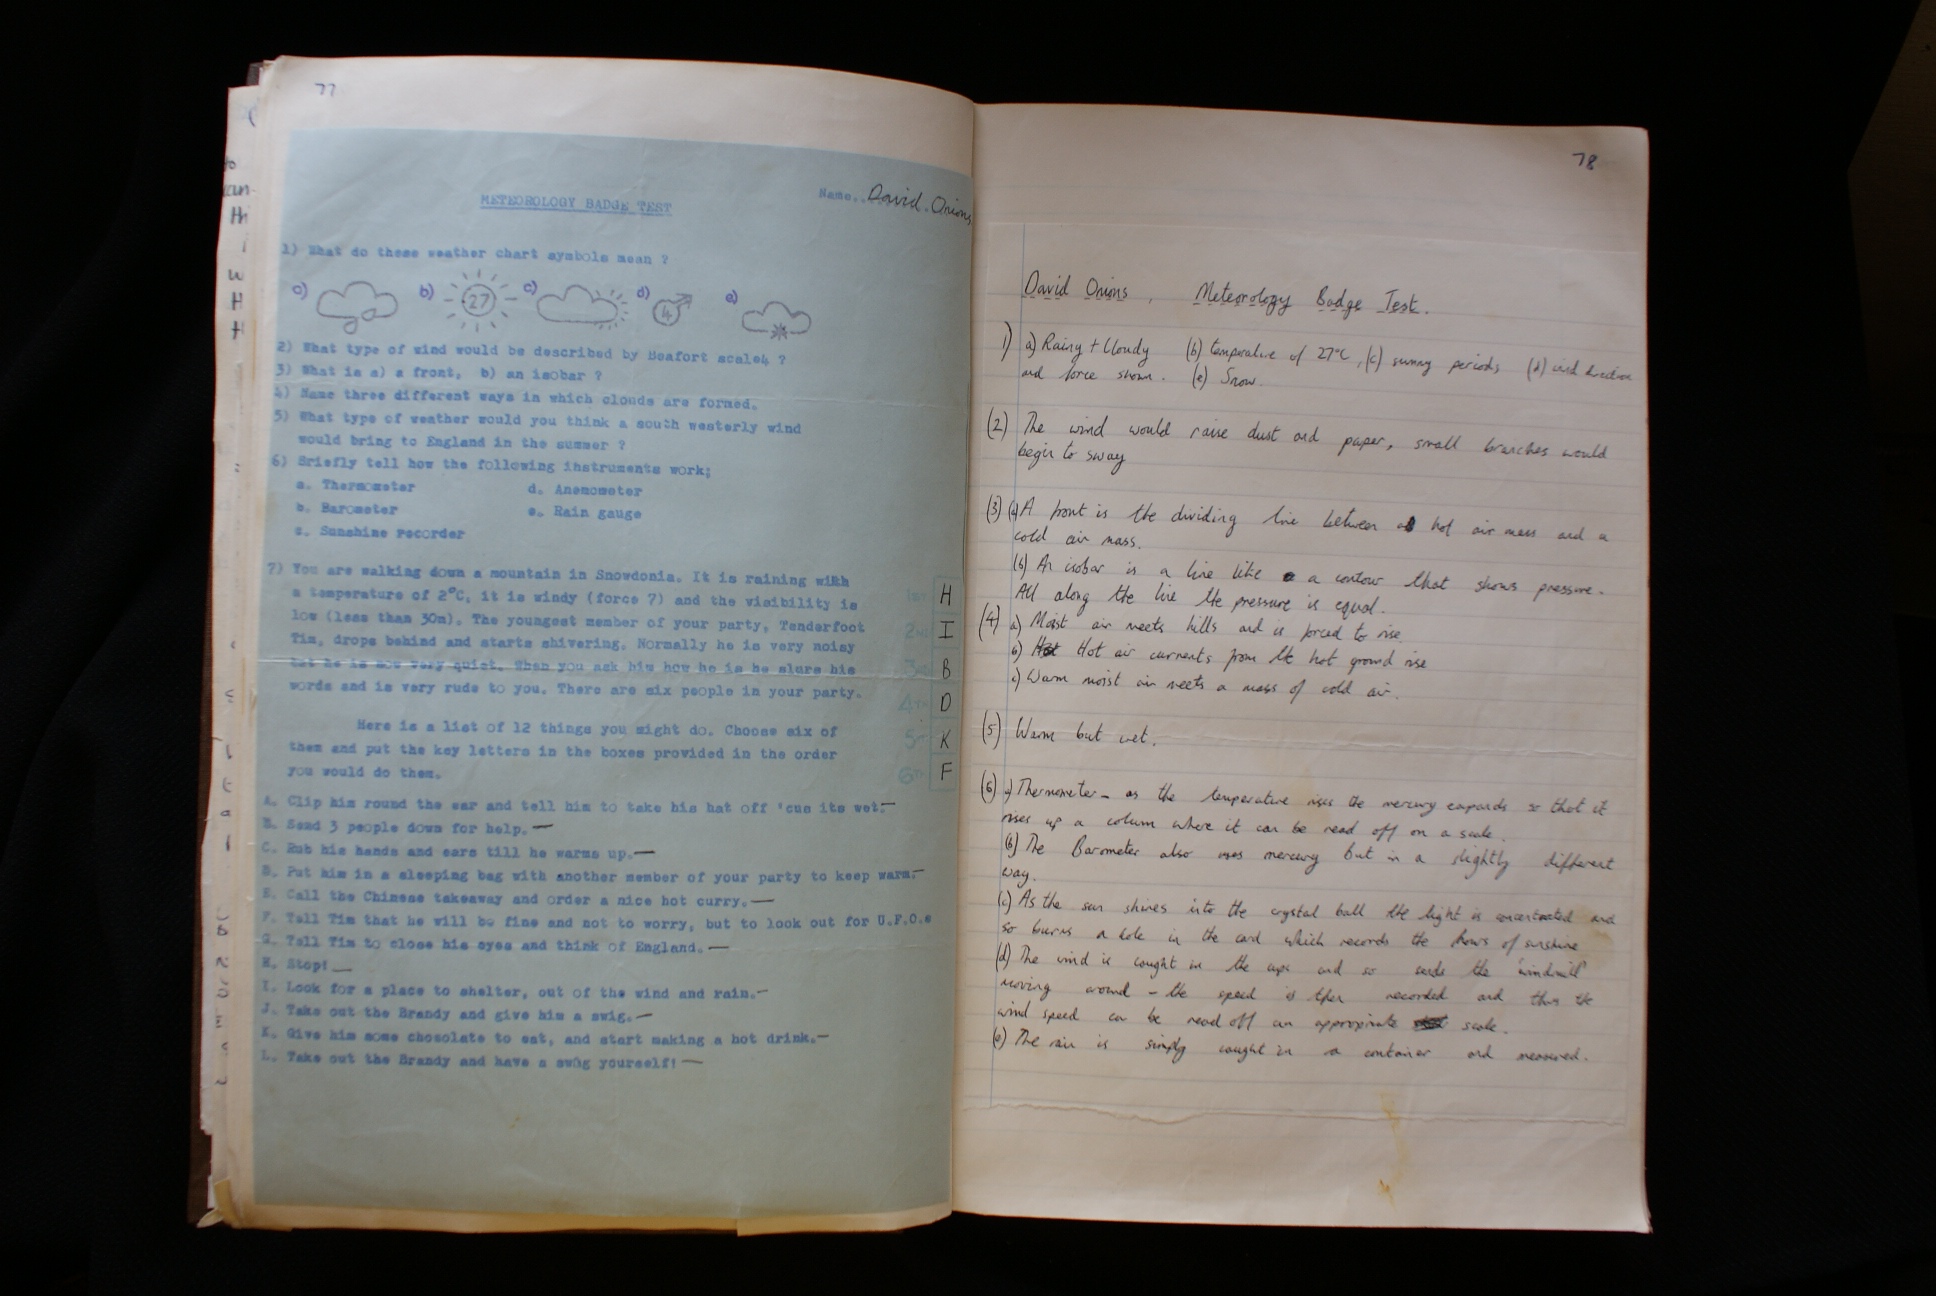 77
METEOROLOGY BADGE TEST
Name..David.Onions
1) What do these weather chart symbols mean ?
c) b) 27 c) d) 4 e)
2) What type of wind would be described by Beafort scale4 ?
3) What is a) a front, b) an isobar ?
4) Name three different ways in which clouds are formed.
5) What type of weather would you think a south westerly wind
would bring to England in the summer ?
6) Briefly tell how the following instruments work;
a. Thermometer d. Anemometer
b. Barometer e. Rain gauge
c. Sunshine recorder
7) You are walking down a mountain in Snowdonia. It is raining with
a temperature of 2°C, it is windy (force 7) and the visibility is
low (less than 30m). The youngest member of your party, Tenderfoot
Tim, drops behind and starts shivering. Normally he is very noisy
but he is now very quiet. When you ask him how he is he slurs his
words and is very rude to you. There are six people in your party.
1st H
2nd I
3rd B
4th D
5th K
6th F
Here is a list of 12 things you might do. Choose six of
them and put the key letters in the boxes provided in the order
you would do them.
A. Clip him round the ear and tell him to take his hat off 'cus its wet.
B. Send 3 people down for help.
C. Rub his hands and ears till he warms up.
D. Put him in a sleeping bag with another member of your party to keep warm.
E. Call the Chinese takeaway and order a nice hot curry.
F. Tell Tim that he will be fine and not to worry, but to look out for U.F.O.s
G. Tell Tim to close his eyes and think of England.
H. Stop!
I. Look for a place to shelter, out of the wind and rain.
J. Take out the Brandy and give him a swig.
K. Give him some chocolate to eat, and start making a hot drink.
L. Take out the Brandy and have a swig yourself!
78
David Onions, Meteorology Badge Test.
1) a) Rainy + Cloudy (b) temperature of 27°C, (c) sunny periods (d) wind direction
and force shown. (e) Snow.
(2) The wind would raise dust and paper, small branches would
begin to sway
(3) (a) A front is the dividing line between a hot air mass and a
cold air mass.
(b) An isobar is a line like a contour that shows pressure.
All along the line the pressure is equal.
(4) a) Moist air meets hills and is forced to rise
b) Hot air currents from the hot ground rise
c) Warm moist air meets a mass of cold air.
(5) Warm but wet.
(6) a) Thermometer - as the temperature rises the mercury expands so that it
rises up a column where it can be read off on a scale.
(b) The Barometer also uses mercury but in a slightly different
way.
(c) As the sun shines into the crystal ball the light is concentrated and
so burns a hole in the card which records the hours of sunshine
(d) The wind is caught in the cups and so sends the 'windmill'
moving around - the speed is then recorded and thus the
wind speed can be read off an approximate scale.
(e) The rain is simply caught in a container and measured.